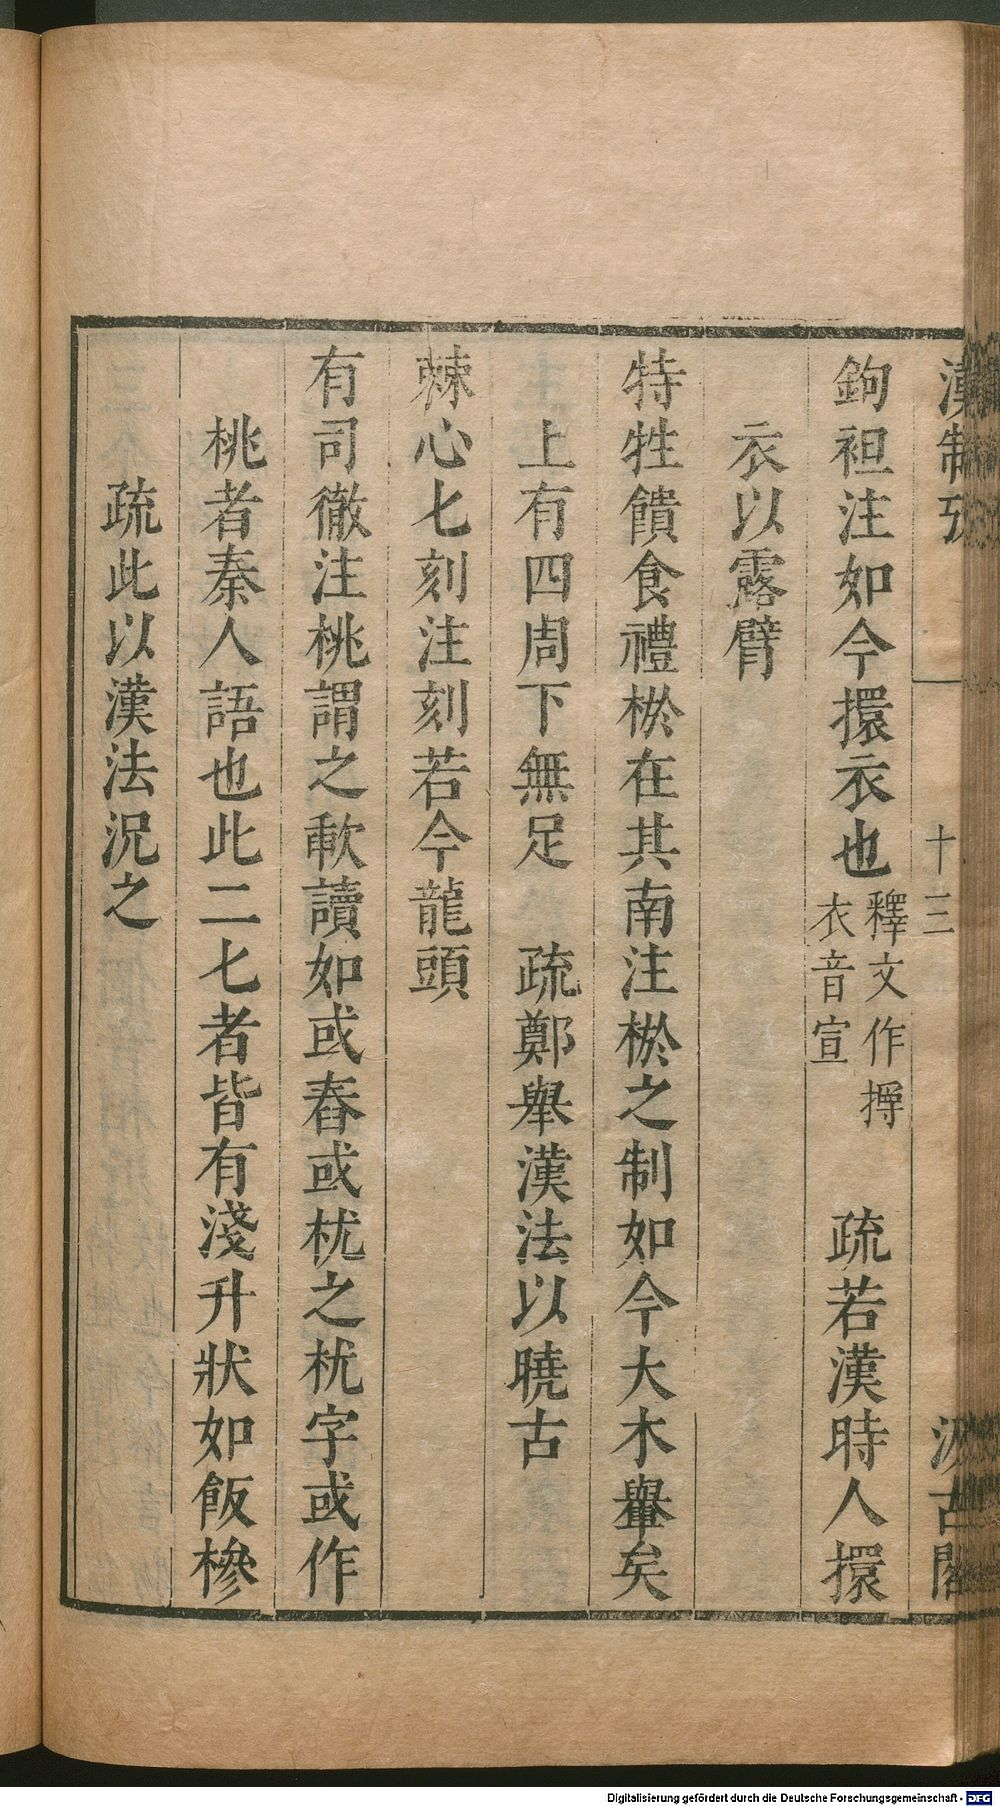 漢制攷 十三 汲古閣
鉤袒注如今擐衣也釋文作㩋衣音宣 疏若漢時人擐
衣以露臂
特牲饋食禮棜在其南注棜之制如今大木轝矣
上有四周下無足 疏鄭舉漢法以曉古
棘心匕刻注刻若今龍頭
有司徹注桃謂之㪺讀如或舂或枕之枕字或作
桃者秦人語也此二匕者皆有淺升狀如飯橾
疏此以漢法況之
Digitalisierung gefördert durch die Deutsche Forschungsgemeinschaft - DFG